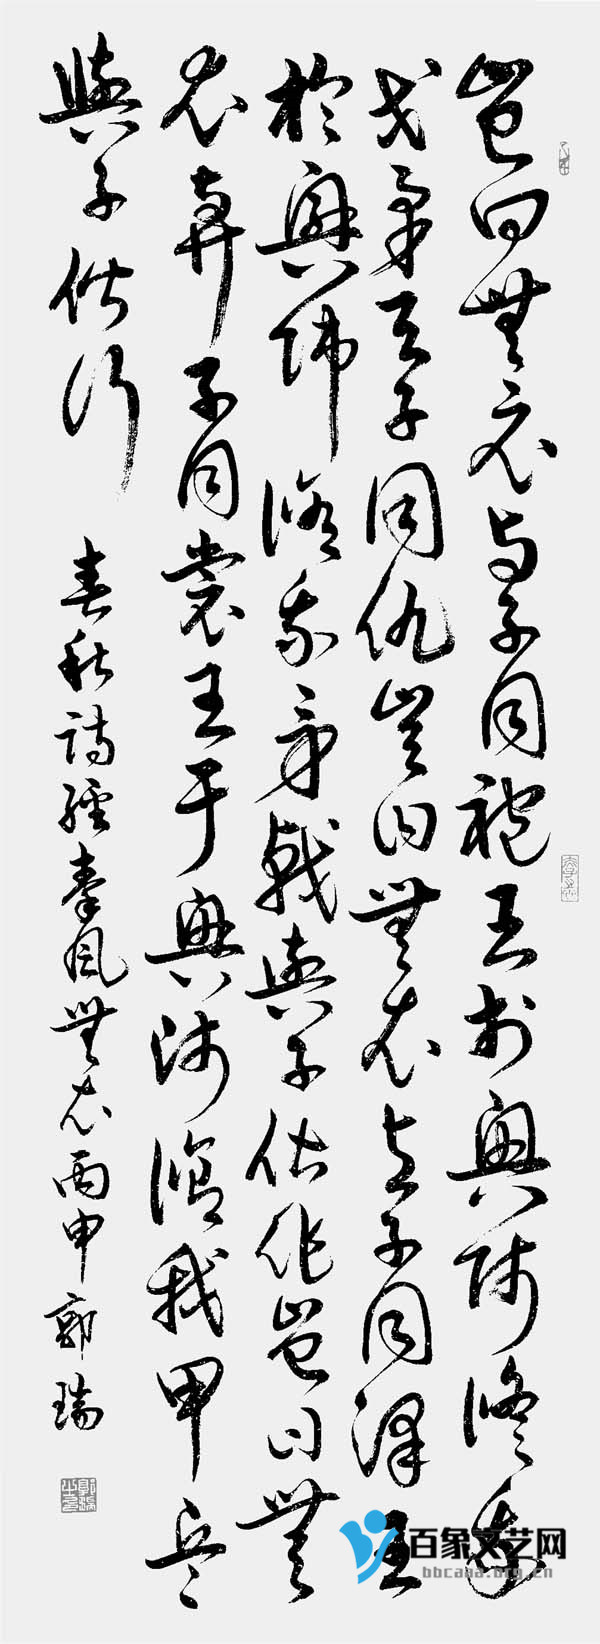 豈曰無衣与子同袍王於興師修我
戈矛與子同仇豈曰無衣與子同澤王
於興師修我矛戟與子偕作豈曰無
衣與子同裳王于興師修我甲兵
與子偕行 春秋詩經秦風無衣丙申郭瑞
百象文艺网
bbcaaa.org.cn